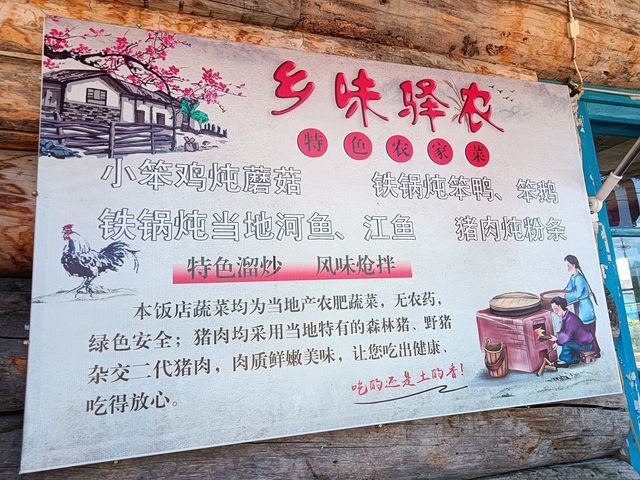 乡味驿农
特色农家菜
小笨鸡炖蘑菇 铁锅炖笨鸭、笨鹅
铁锅炖当地河鱼、江鱼 猪肉炖粉条
特色溜炒 风味炝拌
本饭店蔬菜均为当地产农肥蔬菜，无农药，
绿色安全；猪肉均采用当地特有的森林猪、野猪
杂交二代猪肉，肉质鲜嫩美味，让您吃出健康、
吃得放心。
吃的还是土的香！